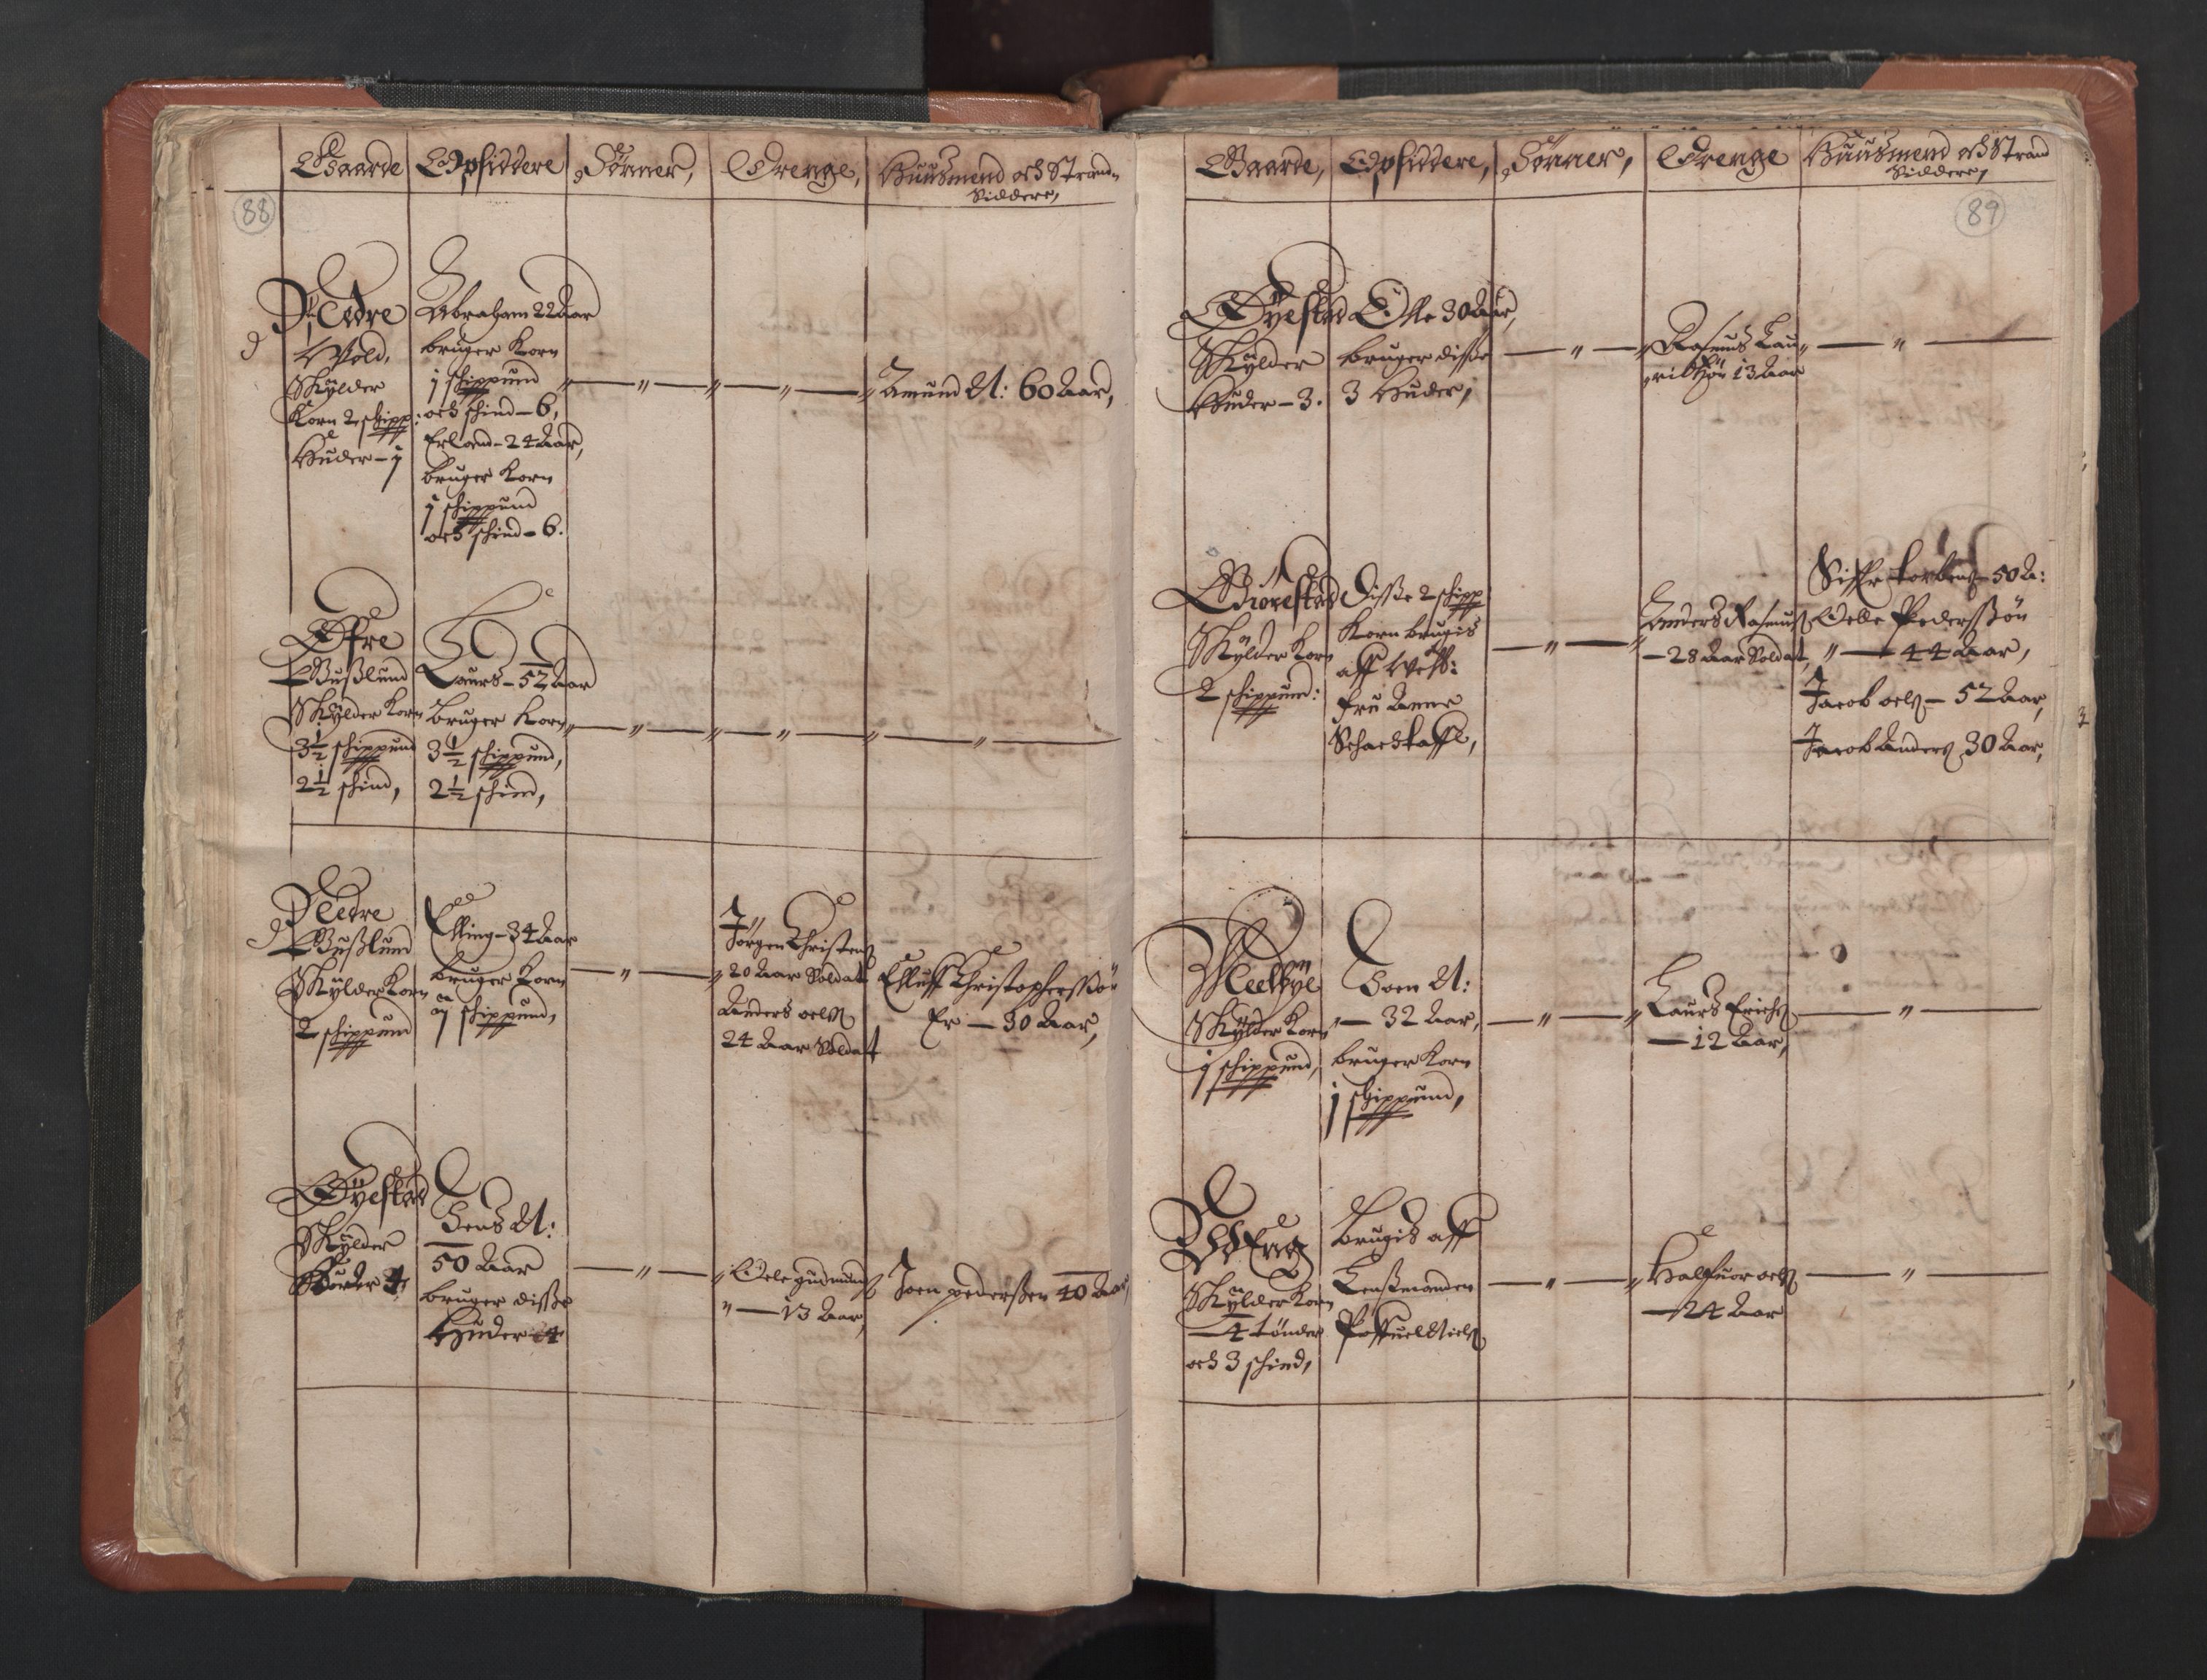 Gaarde Opsiddere Sønner, Drenge, Huusmend och Strand-
Siddere,
88
Nedre
Vold,
Skylder
Korn 2 schipp:
Huder - j
Abraham 22 Aar
bruger Korn
j schippund
och schind - 6,
Erland - 24 Aar,
bruger Korn
j schippund
och schind - 6.
Amund N: 60 Aar,
Øfre
Bußlund
Skylder Korn
3½ schippund
2½ schind,
Laurs - 52 Aar
bruger Korn
3½ schippund,
2½ schind,
Nedre
Bußlund
Skylder Korn
2 schippund
Elling - 34 Aar
bruger Korn
schippund,
Jørgen Christens
20 Aar Soldat
Anders oels
24 Aar Soldatt
Elluff Christopherssøn
Er - 30 Aar,
Øyestad
Skylder
Huder 4
Jens N:
50 Aar
bruger disse
Huder 4
Oele gudmunds
13 Aar
Joen pederßen 40 Aar
Gaarde, Opsiddere, Sønner, Drenge Huusmend och Strand
Siddere,
89
Øyestad
Skylder
Huder - 3.
Olle 30 Aar,
bruger disse
3 Huder,
Rasmus Lau-
ritzøn 13 Aar
Biorestad
Skylder Korn
2 schippund:
Disse 2 schipp
Korn brugis
aff Welb:
fru Anne
Schachtaffl,
Anders Rasmus
- 28 Aar Soldat,
Siffr torbens - 50 A:
Oelle Pederssøn
44 Aar,
Jacob oels - 52 Aar,
Jacob Anders 30 Aar,
Meelbye
Skylder Korn
j schippund,
Soen N:
32 Aar,
bruger Korn
j schippund,
Laurs Erichs
- 12 Aar,
Skylder Korn
- 4 tønder
och 3 schind,
brugis aff
Lensmanden
Poffuel Niels
Halfuor oels
- 24 Aar